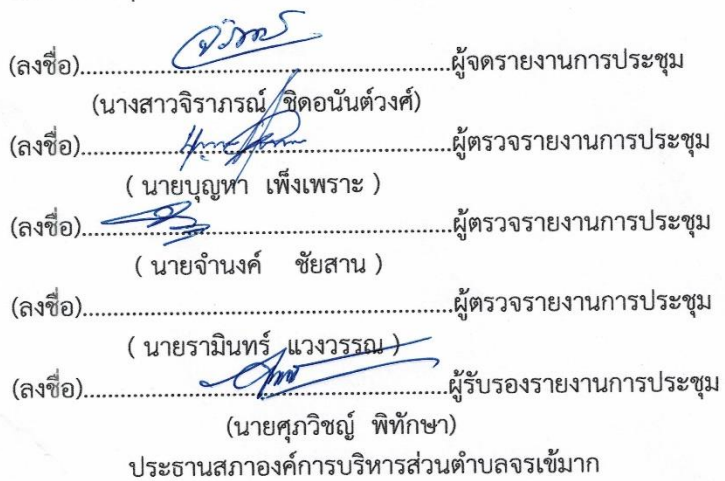 (ลงชื่อ)..................................................ผู้จดรายงานการประชุม
(นางสาวจิราภรณ์ ชิดอนันต์วงศ์)
(ลงชื่อ)..................................................ผู้ตรวจรายงานการประชุม
( นายบุญหา เพ็งเพราะ )
(ลงชื่อ)..................................................ผู้ตรวจรายงานการประชุม
( นายจำนงค์ ชัยสาน )
(ลงชื่อ)..................................................ผู้ตรวจรายงานการประชุม
( นายรามินทร์ แวงวรรณ )
(ลงชื่อ)..................................................ผู้รับรองรายงานการประชุม
(นายศุภวิชญ์ พิทักษา)
ประธานสภาองค์การบริหารส่วนตำบลจรเข้มาก